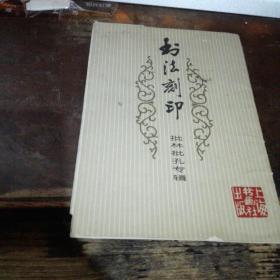 书法刻印
批林批孔专辑
上海
书画社
出版